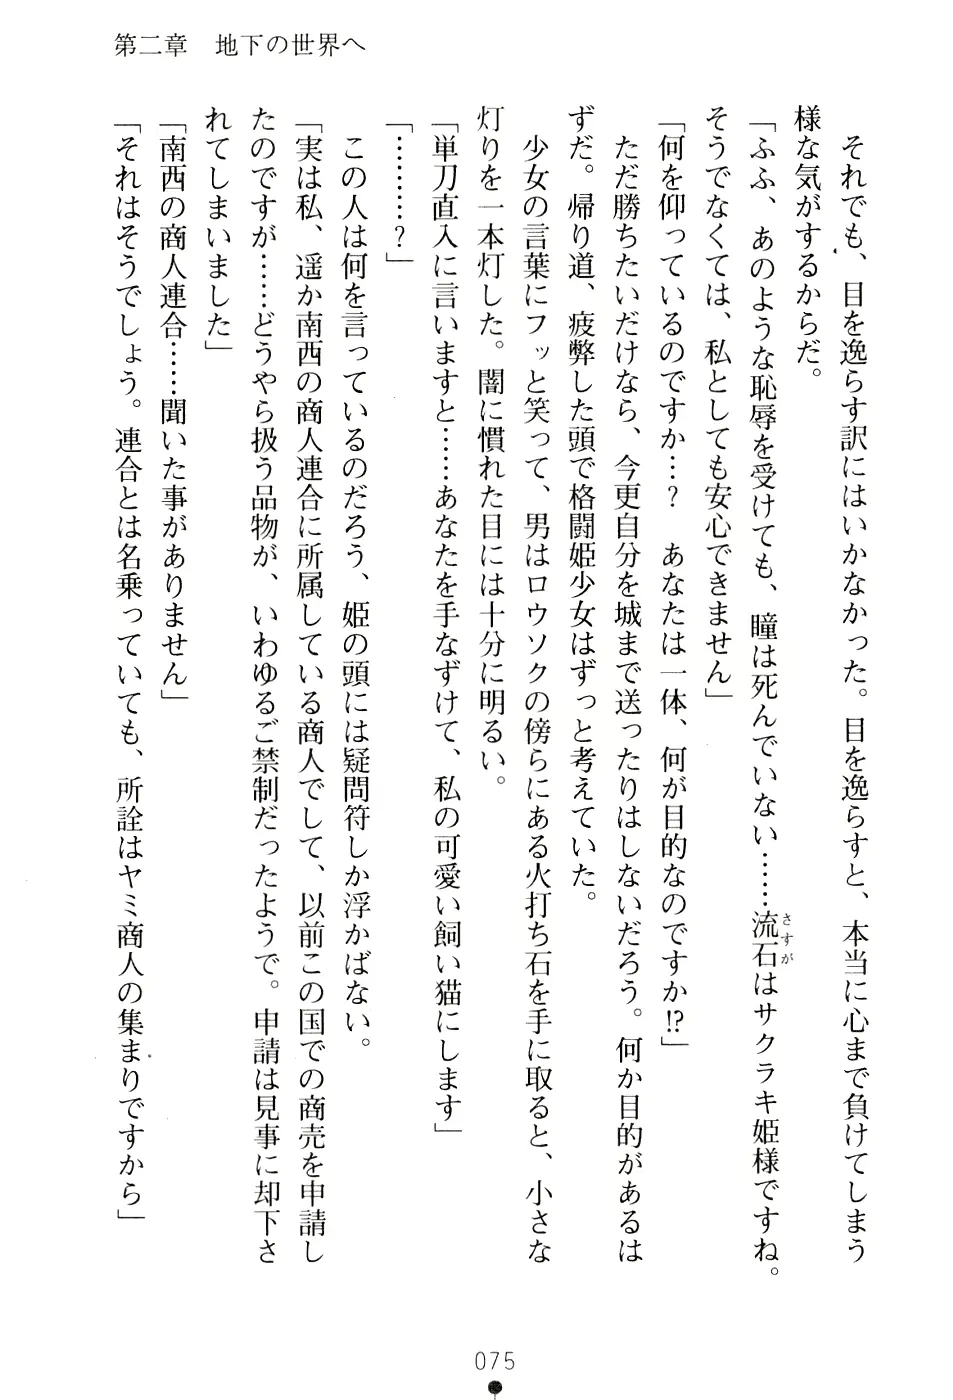 第二章　地下の世界へ
それでも、目を逸らす訳にはいかなかった。目を逸らすと、本当に心まで負けてしまう
様な気がするからだ。
「ふふ、あのような恥辱を受けても、瞳は死んでいない……流石はサクラキ姫様ですね。
さすが
そうでなくては、私としても安心できません」
「何を仰っているのですか…？　あなたは一体、何が目的なのですか⁉」
ただ勝ちたいだけなら、今更自分を城まで送ったりはしないだろう。何か目的があるは
ずだ。帰り道、疲弊した頭で格闘姫少女はずっと考えていた。
少女の言葉にフッと笑って、男はロウソクの傍らにある火打ち石を手に取ると、小さな
灯りを一本灯した。闇に慣れた目には十分に明るい。
「単刀直入に言いますと……あなたを手なずけて、私の可愛い飼い猫にします」
「………？」
この人は何を言っているのだろう、姫の頭には疑問符しか浮かばない。
「実は私、遥か南西の商人連合に所属している商人でして、以前この国での商売を申請し
たのですが……どうやら扱う品物が、いわゆるご禁制だったようで。申請は見事に却下さ
れてしまいました」
「南西の商人連合……聞いた事がありません」
「それはそうでしょう。連合とは名乗っていても、所詮はヤミ商人の集まりですから」
075